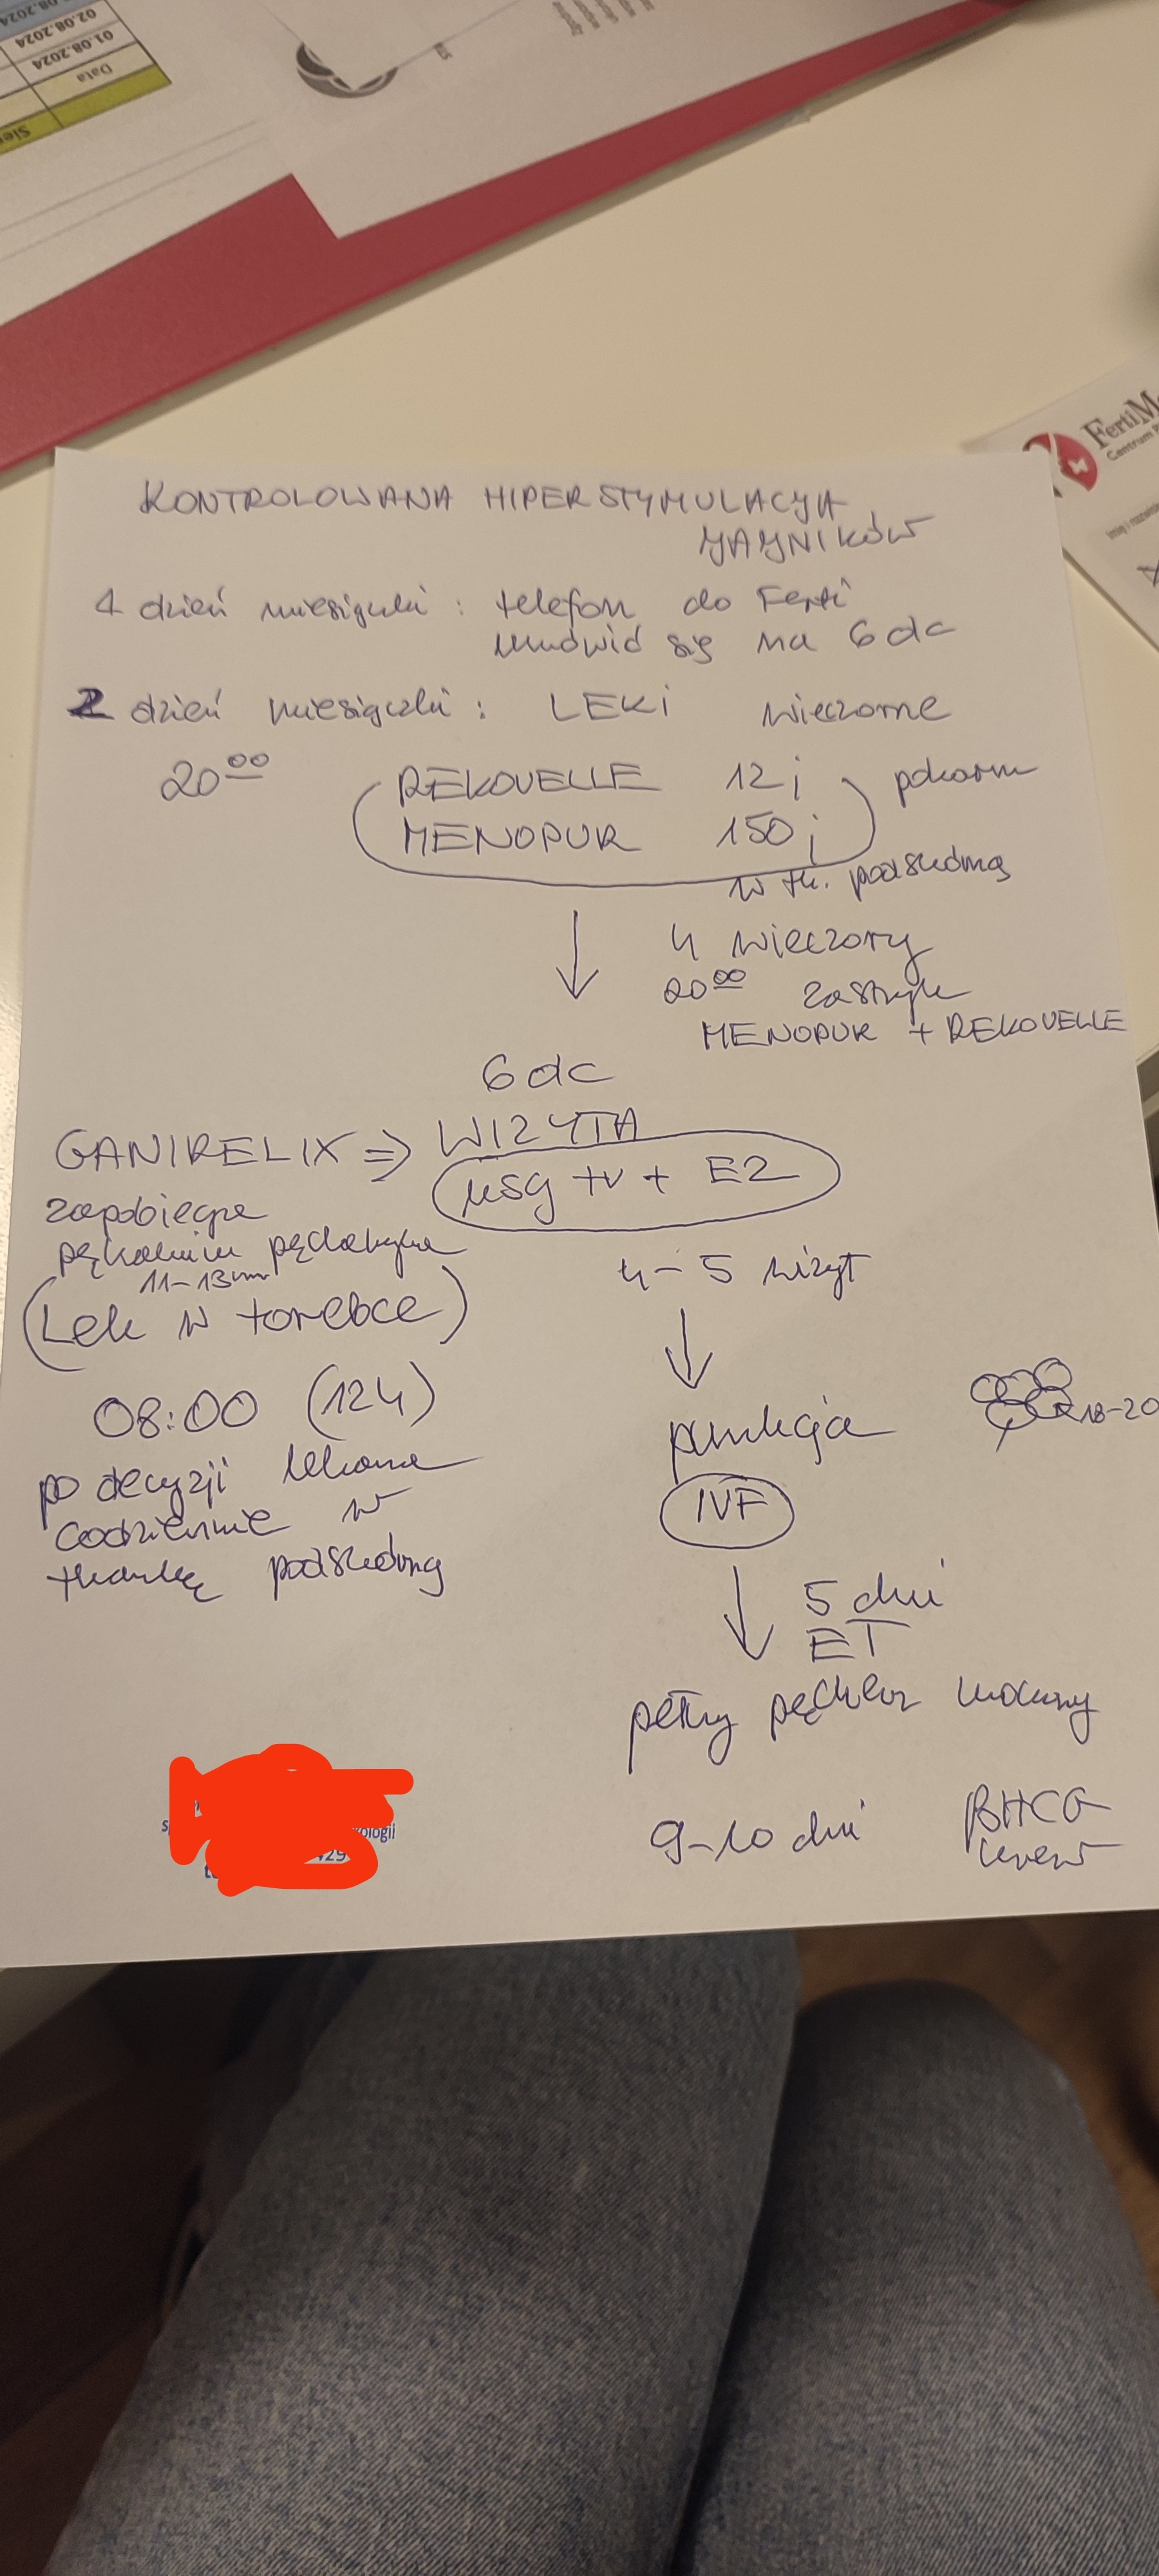 02.08.2024
01.08.2024
Data
FertiM
Centrum
KONTROLOWANA HIPERSTYMULACJA
JAJNIKÓW
1 dzień miesiączki : telefon do Ferti
umówić się na 6 dc
2 dzień miesiączki : LEKI wieczorne
20⁰⁰
REKOVELLE 12 j
MENOPUR 150 j
w tk. podskórną
4 wieczory
20⁰⁰ zastrzyk
MENOPUR + REKOVELLE
6 dc
GANIRELIX => WIZYTA
usg tv + E2
zapobiega
pękaniu pęcherzyka
11-13mm
(Lek w torebce)
4-5 wizyt
08:00 (124)
po decyzji lekarza
codziennie w
tkankę podskórną
punkcja
18-20
IVF
5 dni
ET
pełny pęcherz moczowy
9-10 dni
βHCG
krew